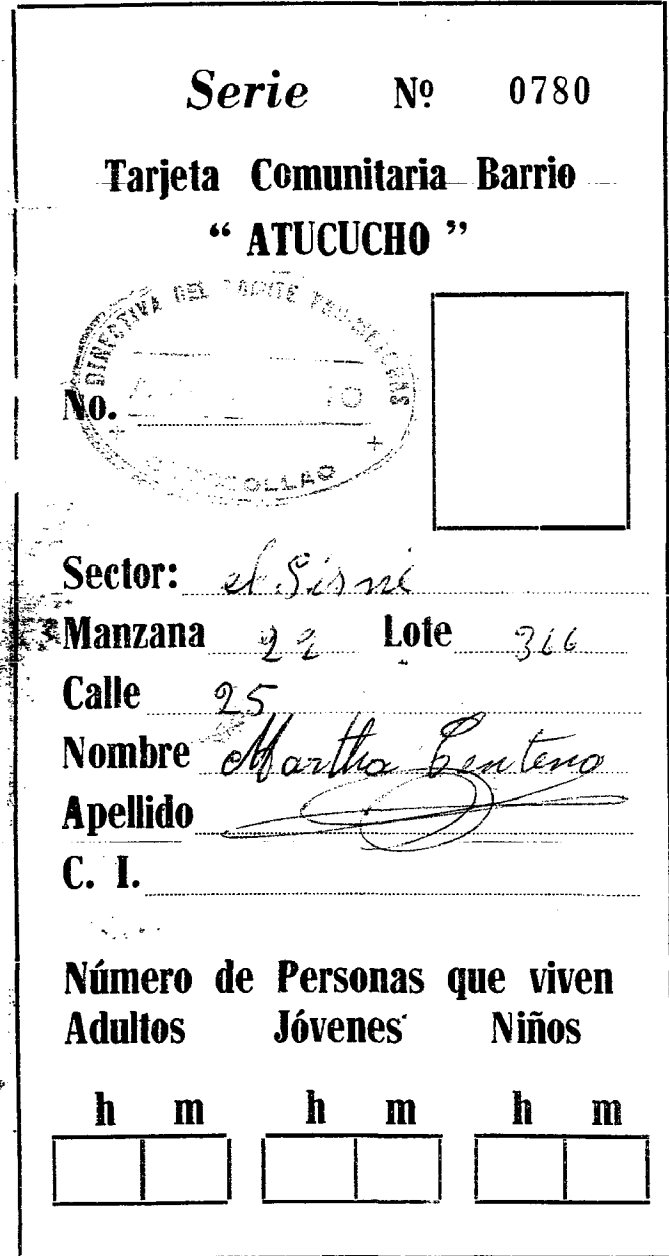 Serie Nº 0780
Tarjeta Comunitaria Barrio
“ ATUCUCHO ”
DIRECTIVA DEL COMITE PRO-MEJORAS
No.
COTOCOLLAO
Sector: el Sisne
Manzana 22 Lote 366
Calle 25
Nombre Martha Centeno
Apellido
C. I.
Número de Personas que viven
Adultos Jóvenes Niños
h m h m h m